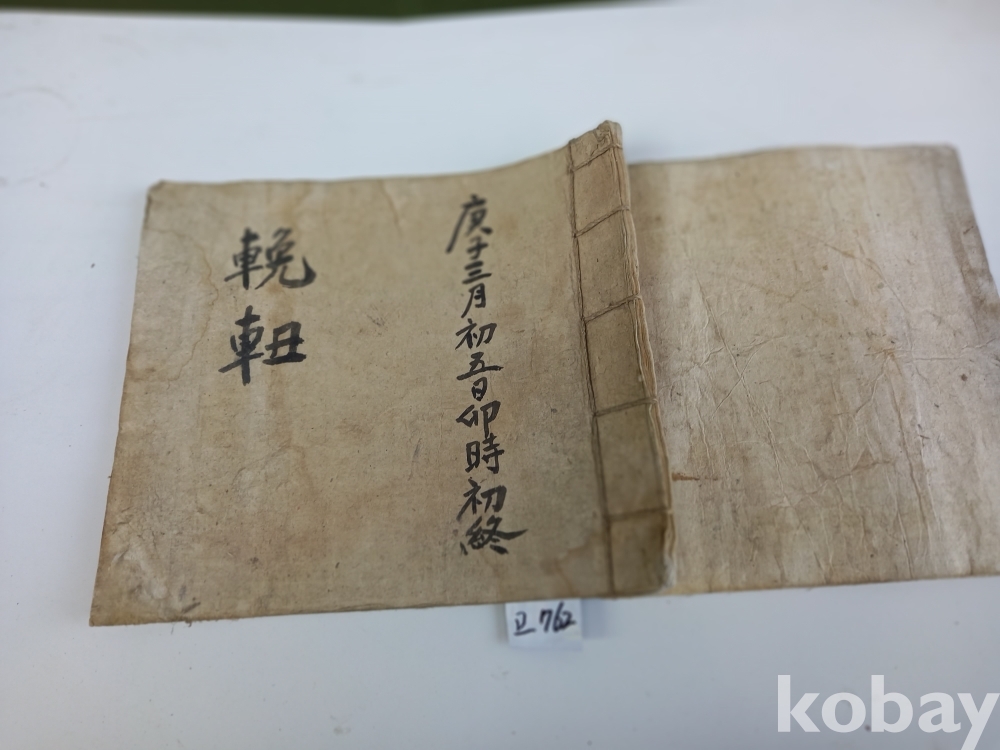 庚子三月初五日卯時初終
輓
762
kobay